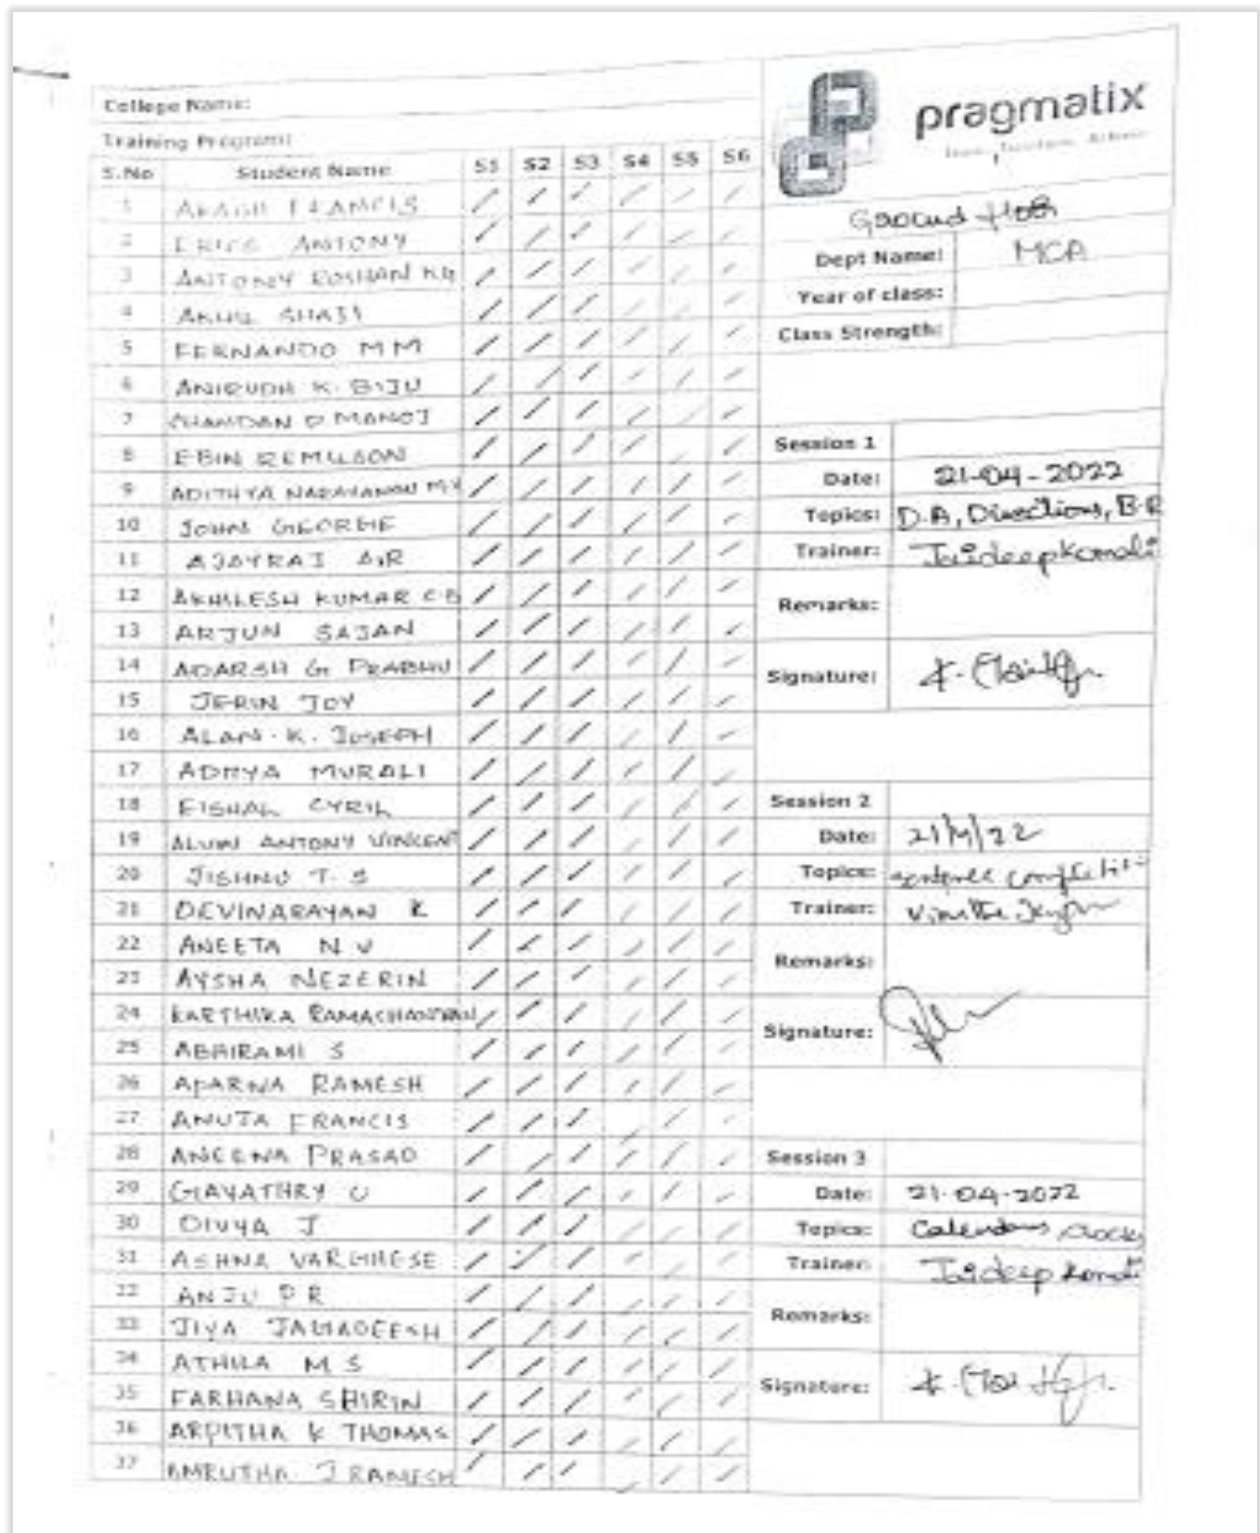 College Name:
Training Program:
pragmatix
S.No Student Name S1 S2 S3 S4 S5 S6
Ground floor
Dept Name: MCA
Year of class:
Class Strength:
1 AKASH FRANCIS
2 ERICS ANTONY
3 ANTONY ROSHAN
4 AKHIL SHAJI
5 FERNANDO M M
6 ANIRUDH K. BIJU
7 CHANDAN D MANOJ
8 EBIN REMILSON
9 ADITHYA NARAYANAN M Y
10 JOHN GEORGE
11 AJAYRAJ A.R
12 AKHILESH KUMAR C B
13 ARJUN SAJAN
14 ADARSH G PRABHU
15 JERIN JOY
16 ALAN. K. JOSEPH
17 MURALI
18 EISHAL CYRIL
19 ALVIN ANTONY VINCENT
20 JISHNU T. S
21 DEVINARAYAN K
22 ANEETA N V
23 AYSHA NEZERIN
24 KARTHIKA RAMACHANDRAN
25 ABHIRAMI S
26 APARNA RAMESH
27 ANUJA FRANCIS
28 ANEENA PRASAD
29 GAYATHRY U
30 DIVYA J
31 ASHNA VARGHESE
32 ANJU P R
33 JIYA JAGADEESH
34 ATHILA M S
35 FARHANA SHIRIN
36 ARPITHA K THOMAS
37 AMRUTHA J RAMESH
Session 1
Date: 21-04-2022
Topics: D.A, Directions, B.R
Trainer: Jaideep
Remarks:
Signature:
Session 2
Date: 21/4/22
Topics: sentence
Trainer:
Remarks:
Signature:
Session 3
Date: 21-04-2022
Topics: Calendars, clocks
Trainer: Jaideep
Remarks:
Signature: